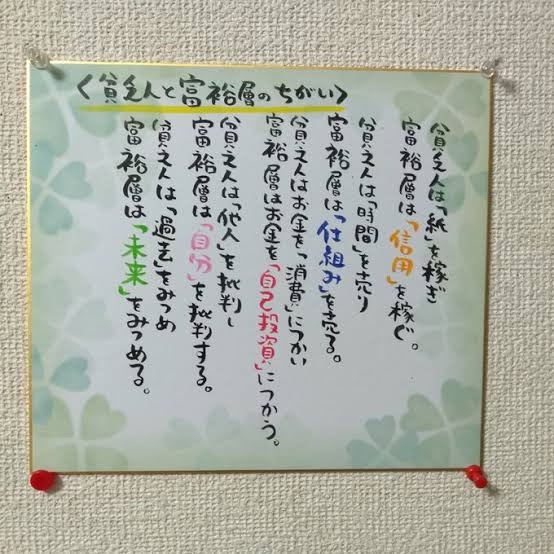 〈貧乏人と富裕層のちがい〉
貧乏人は「紙」を稼ぎ
富裕層は「信用」を稼ぐ。
貧乏人は「時間」を売り
富裕層は「仕組み」を売る。
貧乏人はお金を「消費」につかい
富裕層はお金を「自己投資」につかう。
貧乏人は「他人」を批判し
富裕層は「自分」を批判する。
貧乏人は「過去」をみつめ
富裕層は「未来」をみつめる。